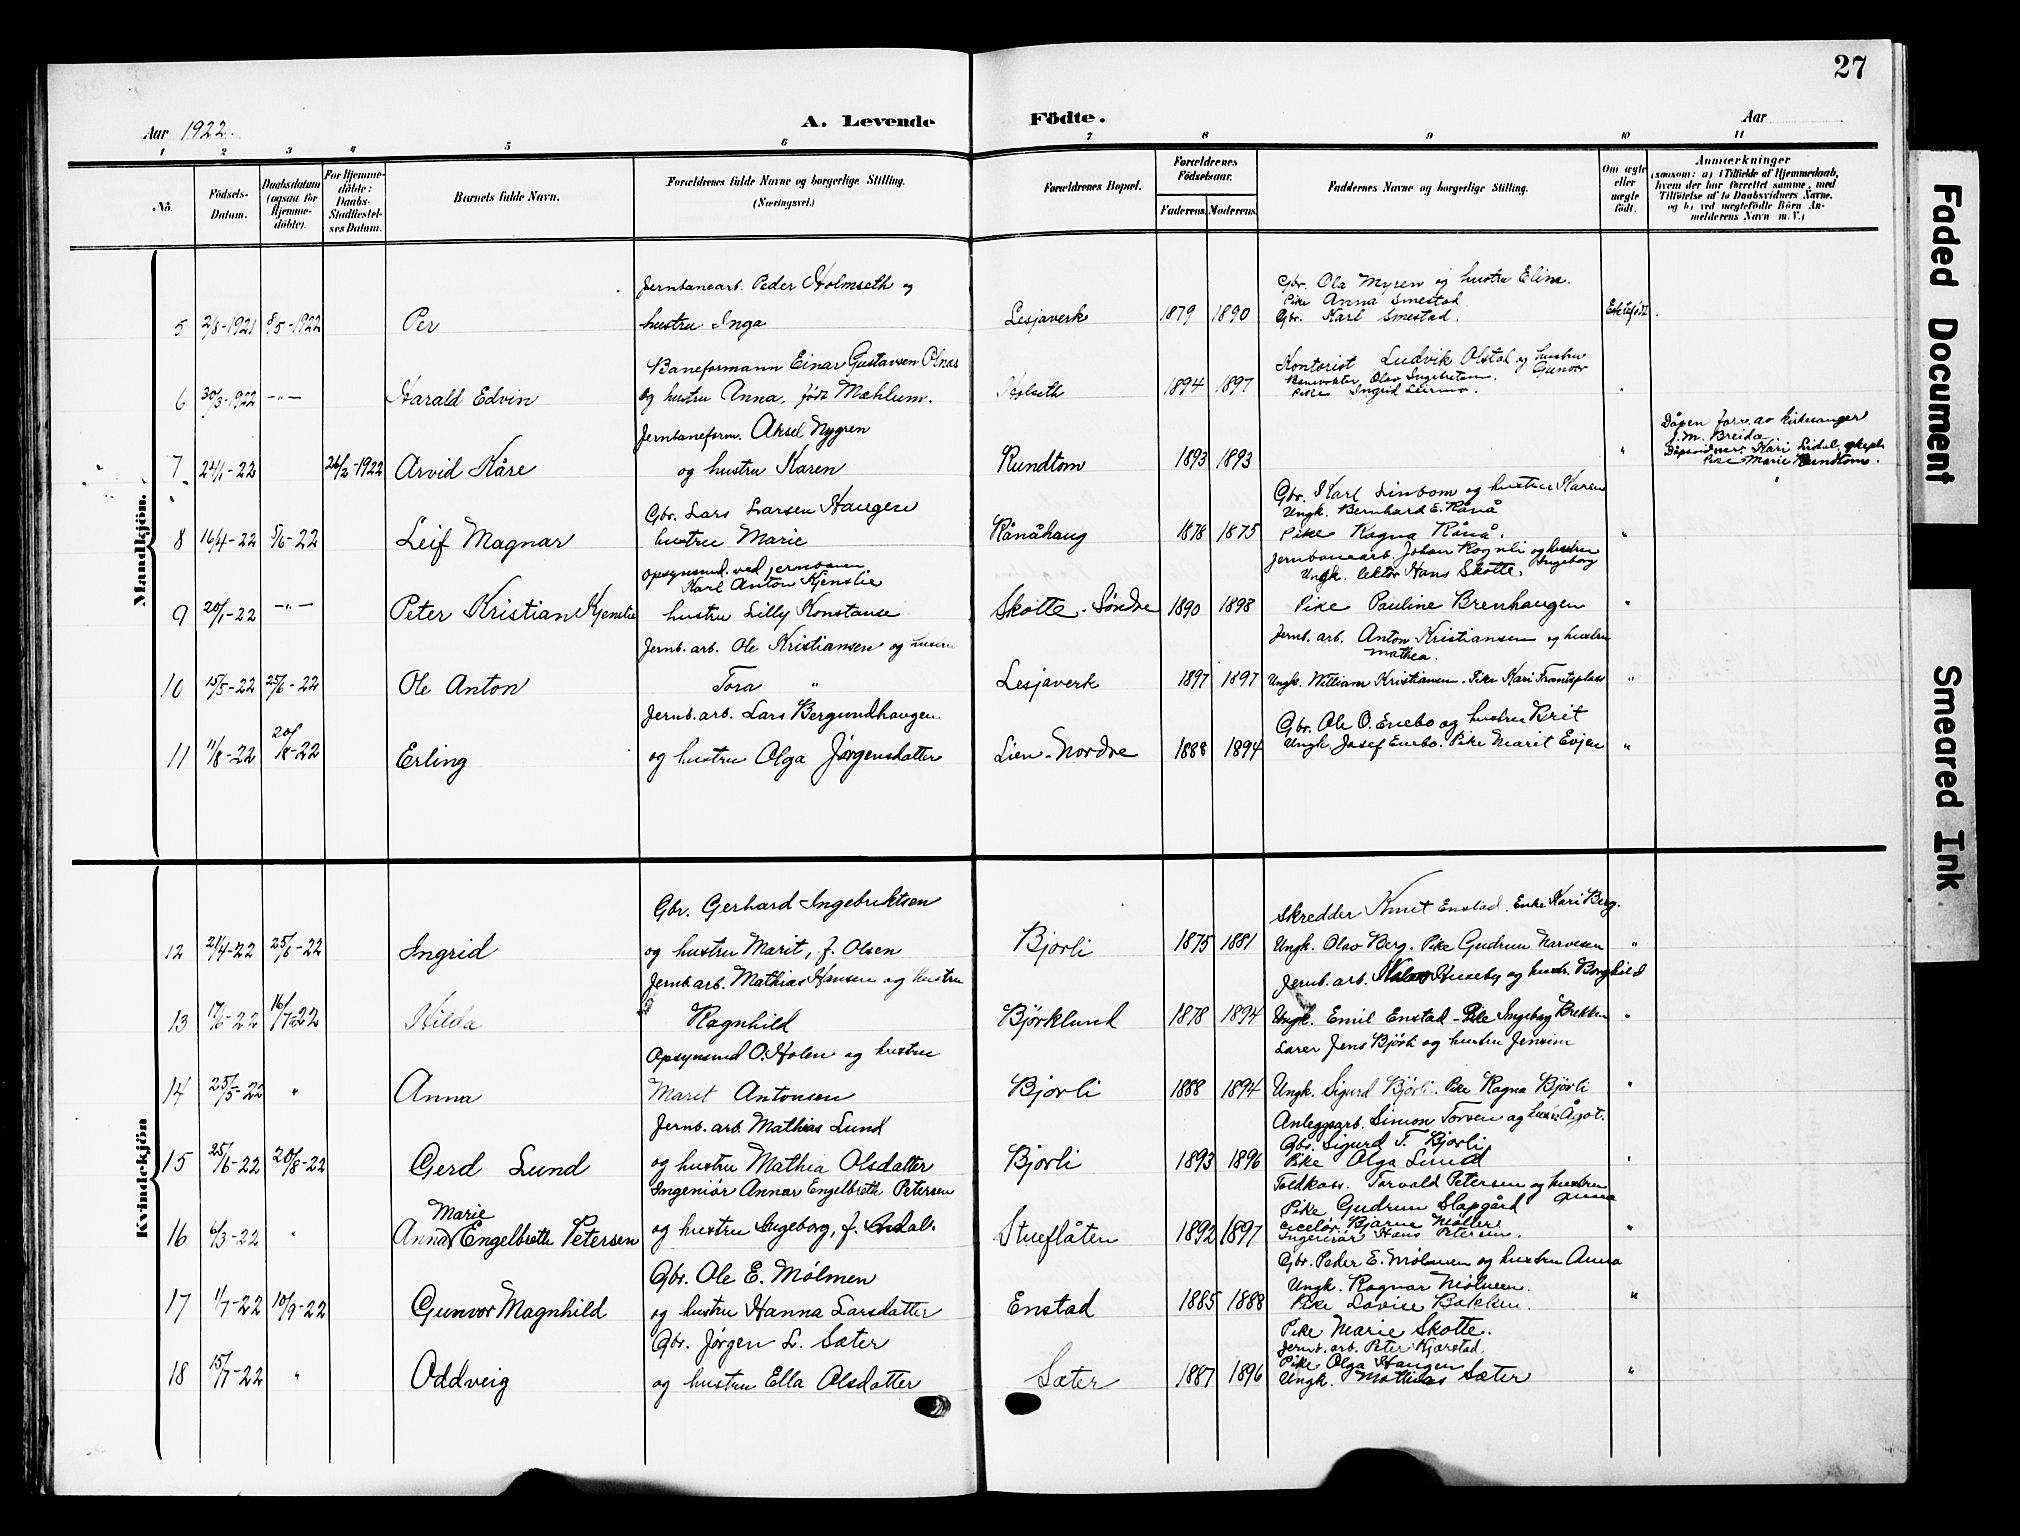 27
Aar 1922.
A. Levende Födte.
Aar
1 2 3 4 5 6 7 8 9 10 11
No.
Födsels-Datum.
Daabsdatum (ogsaa for Hjemme-döbte).
For Hjemme-döbte: Daabs-Stadfæstel-ses Datum.
Barnets fulde Navn.
Forældrenes fulde Navne og borgerlige Stilling.
(Næringsvei.)
Forældrenes Bopæl.
Forældrenes Födselsaar.
Faderens. Moderens.
Faddernes Navne og borgerlige Stilling.
Om ægte eller uægte födt.
Anmærkninger
(saasom: a) i Tilfælde af Hjemmedaab, hvem der har forrettet samme, med Tilföielse af to Daabsvidners Navne, og b) ved uægtefödte Börn Anmelderens Navn m. V.)
Mandkjön.
Jernbanearb. Peder Holmseth og
Gbr. Ola Myren og hustru Eline.
Pike Anna Smestad.
5 2/8-1921 8/5-1922 Per hustru Inga Lesjaverk 1879 1890 Gbr. Karl Smestad. Ektefødt.
Baneformann Einar Gustavsen
Kontorist Ludvik Olstad og hustru Gunvor
Banevokter Olav Ingebretsen.
6 30/3-1922 -"- Harald Edvin og hustru Anna, født Mæhlum. Holseth 1894 1897 Pike Ingrid "
Jernbaneform. Aksel Nygren
Dåpen forr. av kirkesanger
J. M. Breida
7 24/1-22 26/2-1922 Arvid Kåre og hustru Karen Rundtom 1893 1893 " Dåpsvidner: Kari
Pike Marie Rundtom.
Gbr. Lars Larsen Haugen
Gbr. Karl Linbom og hustru Karen
Ungk. Bernhard E. Rånå
8 16/4-22 5/6-22 Leif Magnar hustru Marie Rånåhaug 1878 1875 Pike Ragna Rånå. "
Opsynsmd. ved jernbanen
Karl Anton Kjenslie
Jernbanearb. Johan Rognli og hustru Ingeborg
Ungk. lektor Hans Skotte
9 20/1-22 -"- Peter Kristian Kjenslie hustru Lilly Konstanse Skotte-Søndre 1890 1898 Pike Pauline Brenhaugen "
Jernb. arb. Ole Kristiansen og hustru
Jernb. arb. Anton Kristiansen og hustru
Mathea.
10 15/5-22 25/6-22 Ole Anton Tora " Lesjaverk 1897 1897 Ungk. William Kristiansen. Pike Kari "
Jernb. arb. Lars Bergundhaugen
Gbr. Ole O. Enebo og hustru Brit
11 11/8-22 20/8-22 Erling og hustru Olga Jørgensdatter Lien-Nordre 1888 1894 Ungk. Josef Enebo. Pike Marit Evjen "
Kvindekjön
Gbr. Gerhard Ingebriktsen
Skredder Knut Enstad. Enke Kari Berg.
12 21/4-22 25/6-22 Ingrid og hustru Marit, f. Olsen Bjorli 1875 1881 Ungk. Olav Berg. Pike Gudrun Narvesen "
Jernb. arb. Mathias Hansen og hustru
Jernb. arb. Huseby og hustr. Borghild
13 17/6-22 16/7-22 Hilda Ragnhild Bjørklund 1878 1894 Ungk. Emil Enstad - Pike Ingeborg Brekken "
Opsynsmd O. Holen og hustru
Lærer Jens Bjørli og hustru Jensine
14 25/5-22 " Anna Marit Antonsen Bjorli 1888 1894 Ungk. Sigurd Bjørli. Pike Ragna Bjørli "
Jernb. arb. Mathias Lund
Anleggsarb. Simon Torsen og hustr. Ågot.
Gbr. Sigurd T. Bjorli
15 25/6-22 20/8-22 Gerd Lund og hustru Mathea Olsdatter Bjorli 1893 1896 Pike Olga Lund "
Ingeniør Annar Engelbreth Petersen
Toldkass. Torvald Petersen og hustru Anna
Pike Gudrun Slapgård
Bjarne Møller
16 6/3-22 " Anna Marie Engelbreth Petersen og hustru Ingeborg, f. Stueflåten 1892 1897 Ingeniør Hans Petersen. "
Gbr. Ole E. Mølmen
Gbr. Peder E. Mølmen og hustru Anna
Ungk. Ragnar Mølmen.
17 1/7-22 10/9-22 Gunvor Magnhild og hustru Hanna Larsdatter Enstad 1885 1888 Pike Lovise Bakken. "
Gbr. Jørgen L. Sæter
Pike Marie Skotte.
Jernb. arb. Peter Kjærstad
Pike Olga Haugen
18 15/7-22 " Oddveig og hustru Ella Olsdatter Sæter 1887 1896 Ungk. Mathias Sæter "
Faded Document
Smeared Ink